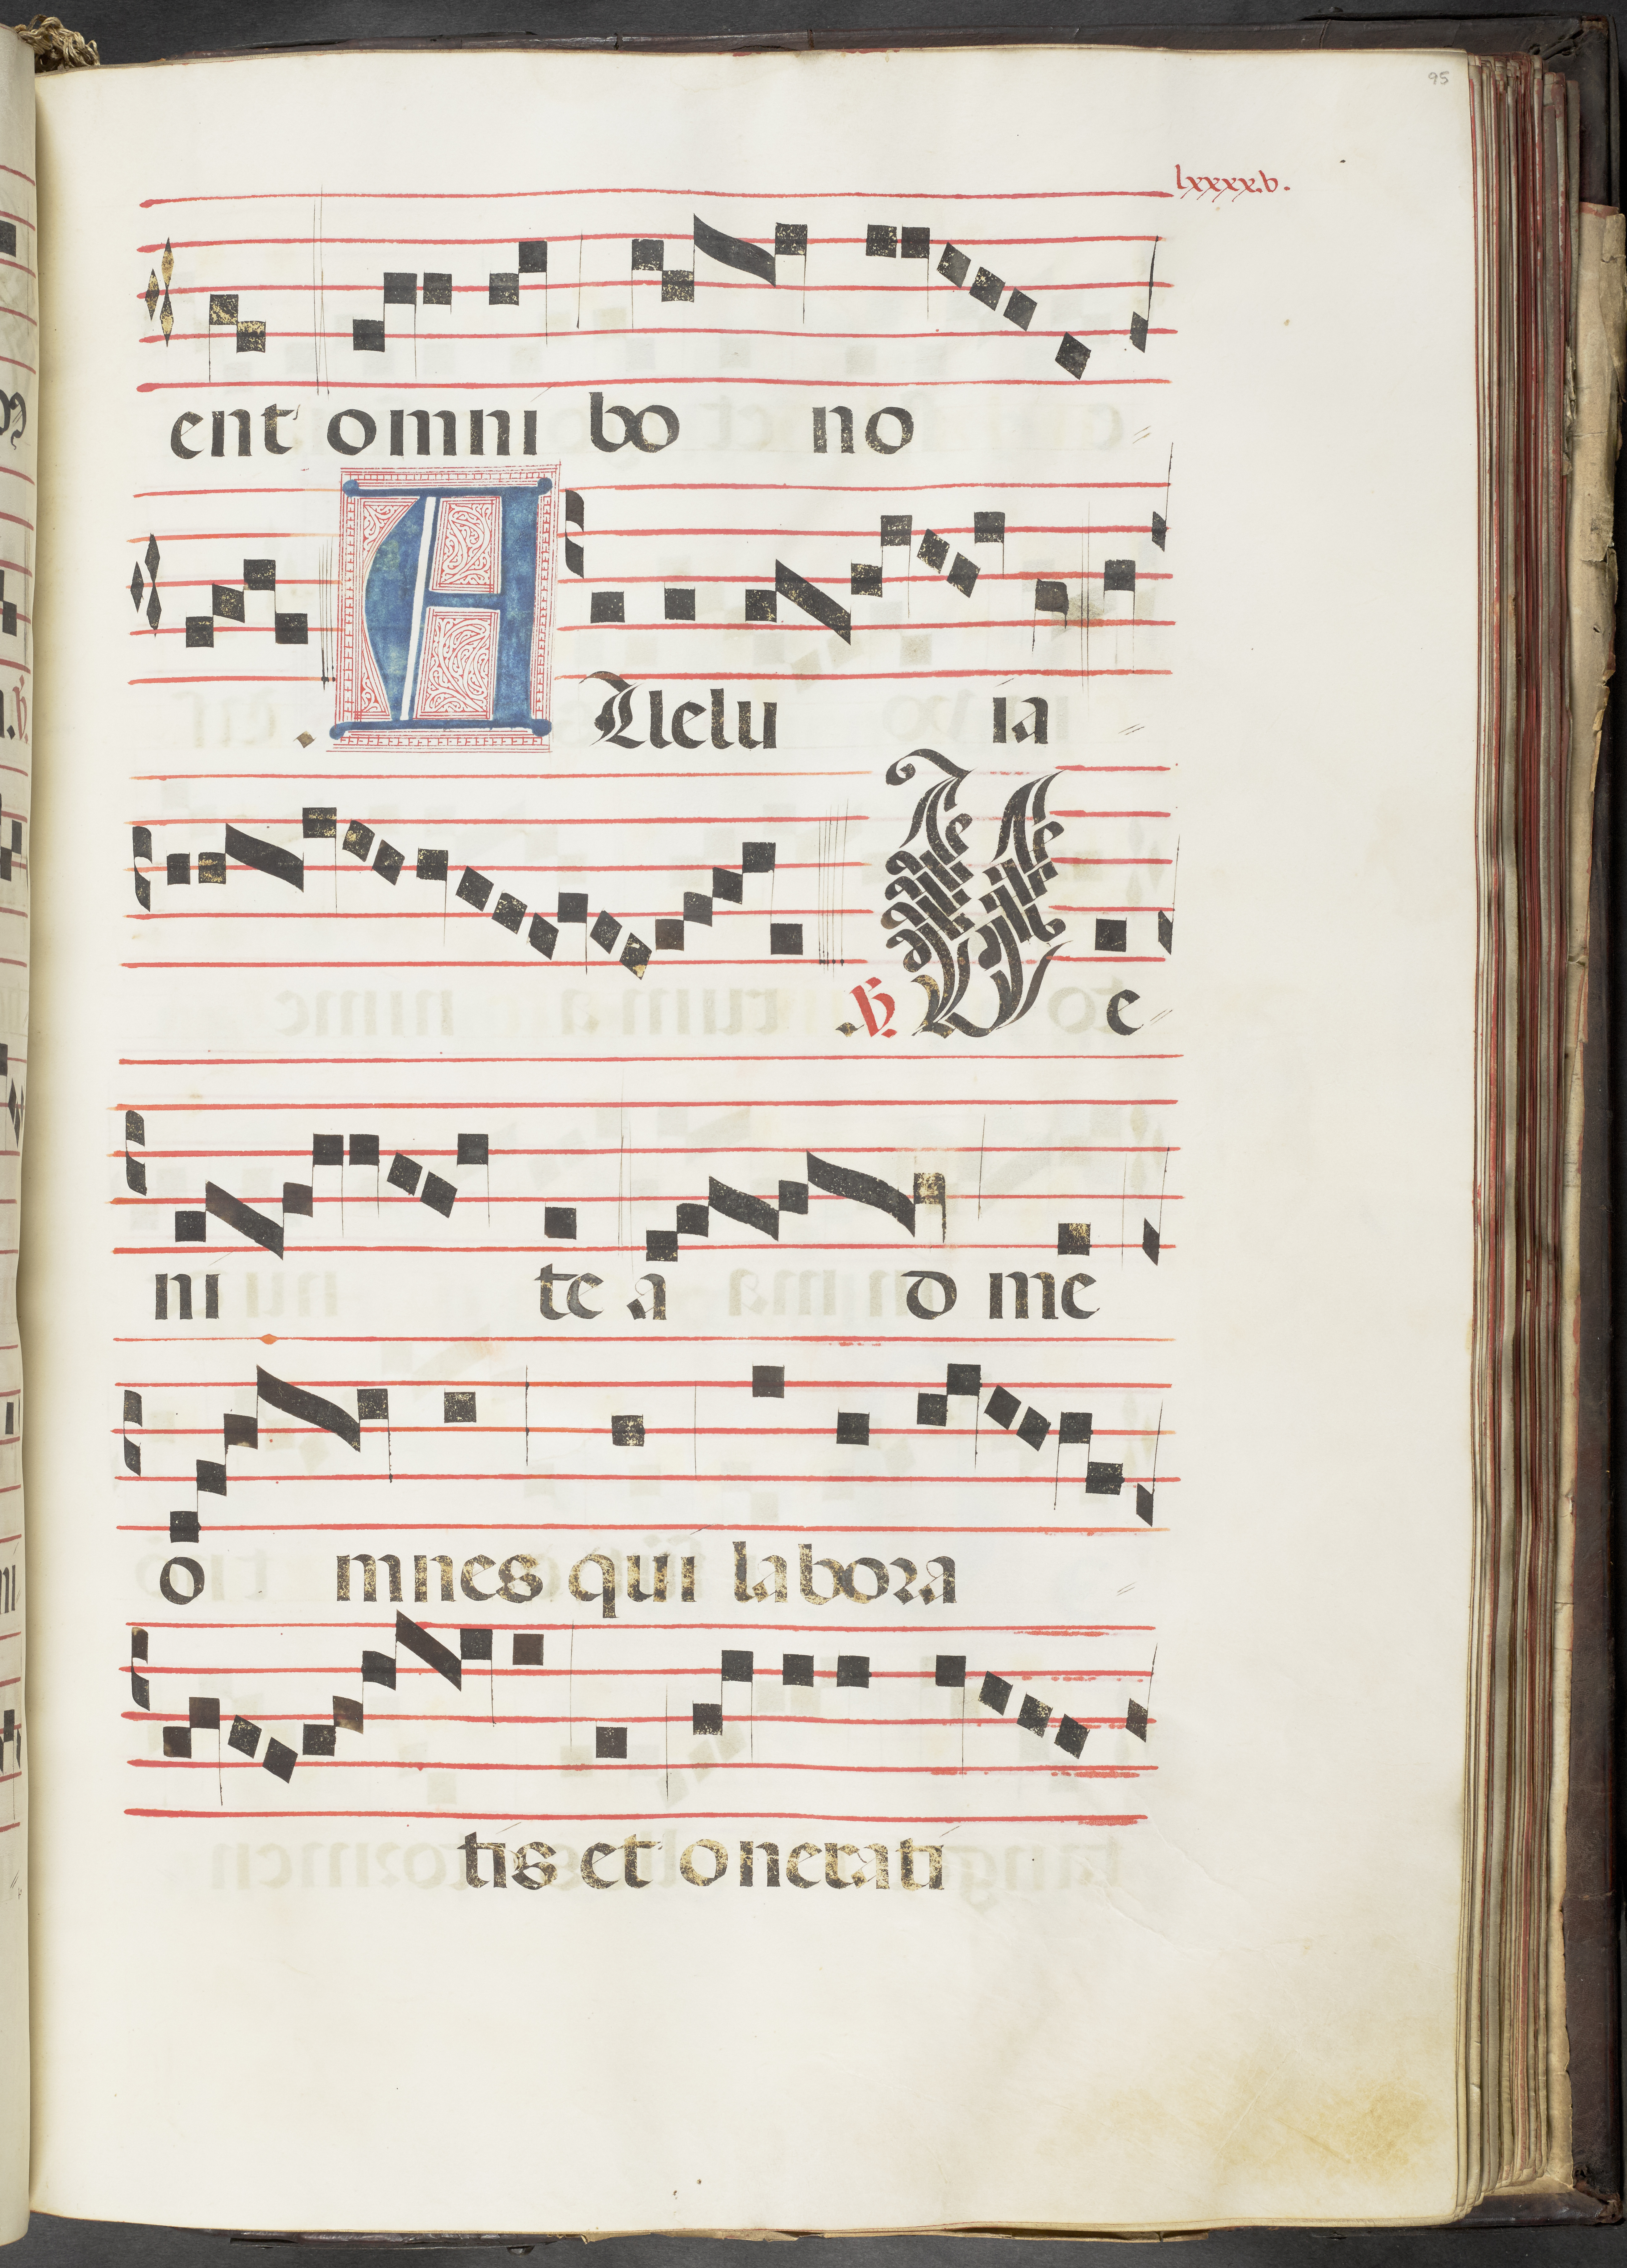 95
lxxxxv.
ent omni bo no
. Allelu ia
. ℣. Ve
ni te a d me
o mnes qui labora
tis et onerati